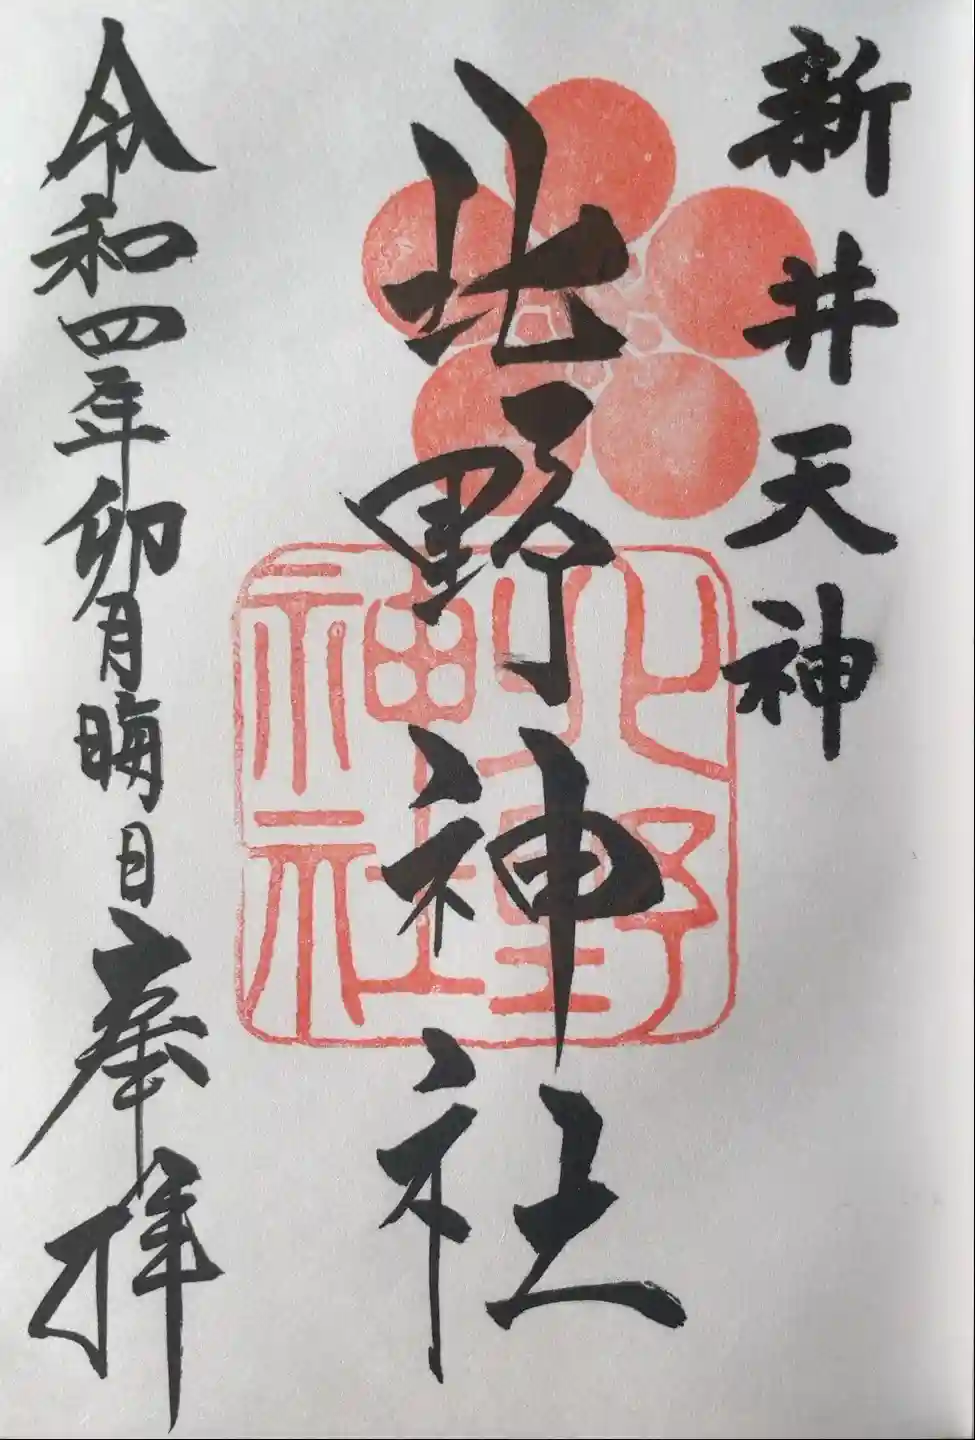 新井天神
北野神社
北野
神社
令和四年卯月晦日奉拝